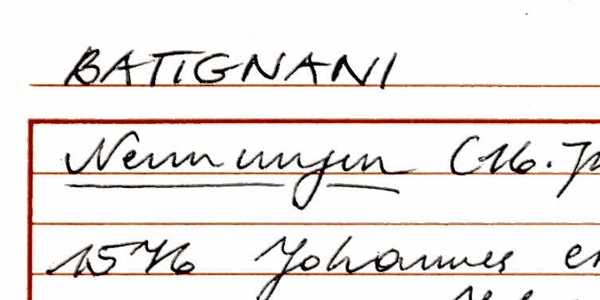 BATIGNANI
Nennungen (16. J
1576 Johannes er